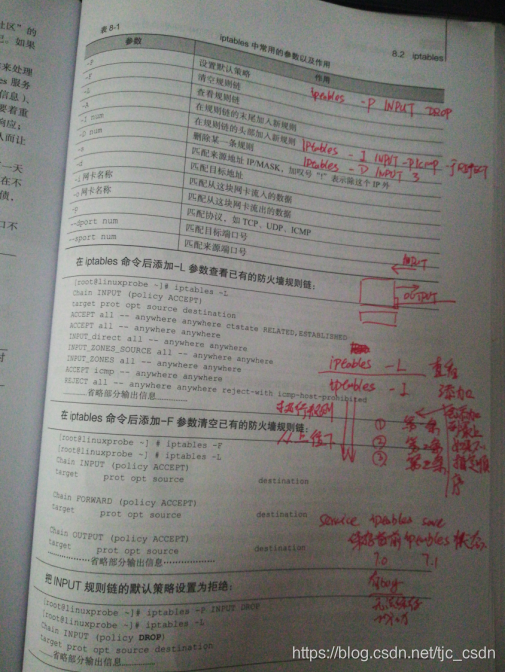 8.2 iptables
表 8-1 iptables 中常用的参数以及作用
参数 作用
-P 设置默认策略
-F 清空规则链
-L 查看规则链
-A 在规则链的末尾加入新规则
-I num 在规则链的头部加入新规则
-D num 删除某一条规则
-s 匹配来源地址 IP/MASK，加叹号“!”表示除这个 IP 外
-d 匹配目标地址
-i 网卡名称 匹配从这块网卡流入的数据
-o 网卡名称 匹配从这块网卡流出的数据
-p 匹配协议，如 TCP、UDP、ICMP
--dport num 匹配目标端口号
--sport num 匹配来源端口号
iptables -P INPUT DROP
iptables -I INPUT -p icmp -j REJECT
iptables -D INPUT 3
在 iptables 命令后添加-L 参数查看已有的防火墙规则链：
[root@linuxprobe ~]# iptables -L
Chain INPUT (policy ACCEPT)
target prot opt source destination
ACCEPT all -- anywhere anywhere ctstate RELATED,ESTABLISHED
ACCEPT all -- anywhere anywhere
INPUT_direct all -- anywhere anywhere
INPUT_ZONES_SOURCE all -- anywhere anywhere
INPUT_ZONES all -- anywhere anywhere
ACCEPT icmp -- anywhere anywhere
REJECT all -- anywhere anywhere reject-with icmp-host-prohibited
省略部分输出信息
INPUT
OUTPUT
iptables -L 查看
iptables -I 添加
执行规则
从上往下
① 第一条
② 第二条
③ 第三条
在 iptables 命令后添加-F 参数清空已有的防火墙规则链：
[root@linuxprobe ~] # iptables -F
[root@linuxprobe ~] # iptables -L
Chain INPUT (policy ACCEPT)
target prot opt source destination
Chain FORWARD (policy ACCEPT)
target prot opt source destination
Chain OUTPUT (policy ACCEPT)
target prot opt source destination
省略部分输出信息
service iptables save
保存当前 iptables 状态
7.0 7.1
把 INPUT 规则链的默认策略设置为拒绝：
[root@linuxprobe ~]# iptables -P INPUT DROP
[root@linuxprobe ~]# iptables -L
Chain INPUT (policy DROP)
target prot opt source destination
省略部分输出信息
https://blog.csdn.net/tjc_csdn